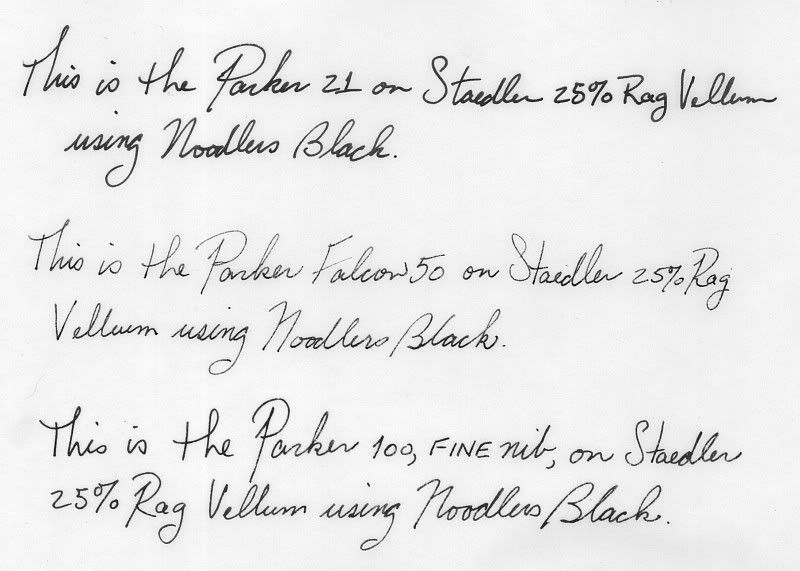 This is the Parker 21 on Staedler 25% Rag Vellum
using Noodlers Black.
This is the Parker Falcon 50 on Staedler 25% Rag
Vellum using Noodlers Black.
This is the Parker 100, FINE nib, on Staedler
25% Rag Vellum using Noodlers Black.